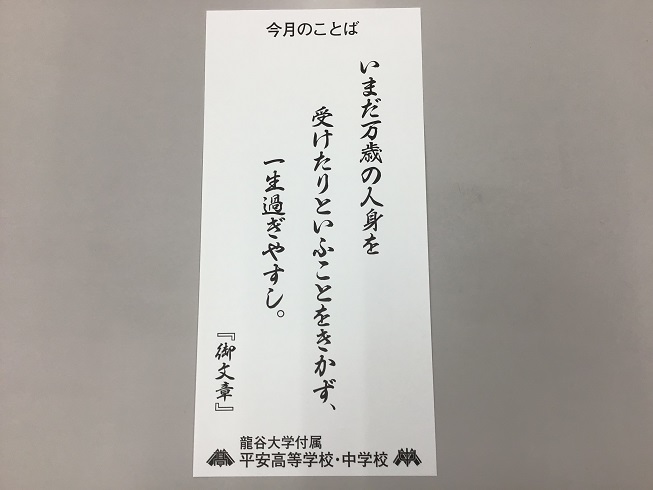 今月のことば
いまだ万歳の人身を
受けたりといふことをきかず、
一生過ぎやすし。
『御文章』
龍谷大学付属
平安高等学校・中学校